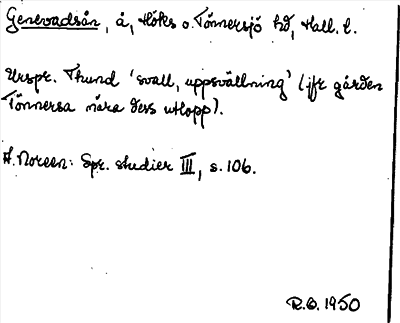 Genevadsån, å, Höks o. Tönnersjö hd, Hall. l.
Urspr. Thund 'svall, uppsvällning' (jfr gården
Tönnersa nära dess utlopp).
A. Noreen: Spr. studier III, s. 106.
R.G. 1950